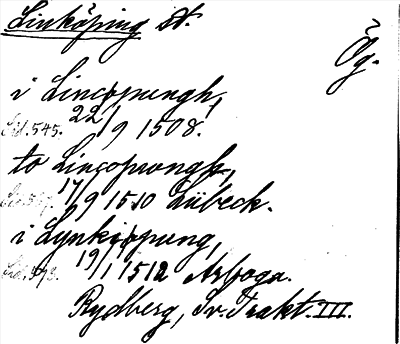 Linköping st.
Ög.
i Lincopungh,
Sid. 545. 22/9 1508.
to Lincopwngh,
17/9 1510 Lübeck.
i Lynkiøpung,
19/1 1512 Arboga.
Rydberg, Sv. Trakt. III.